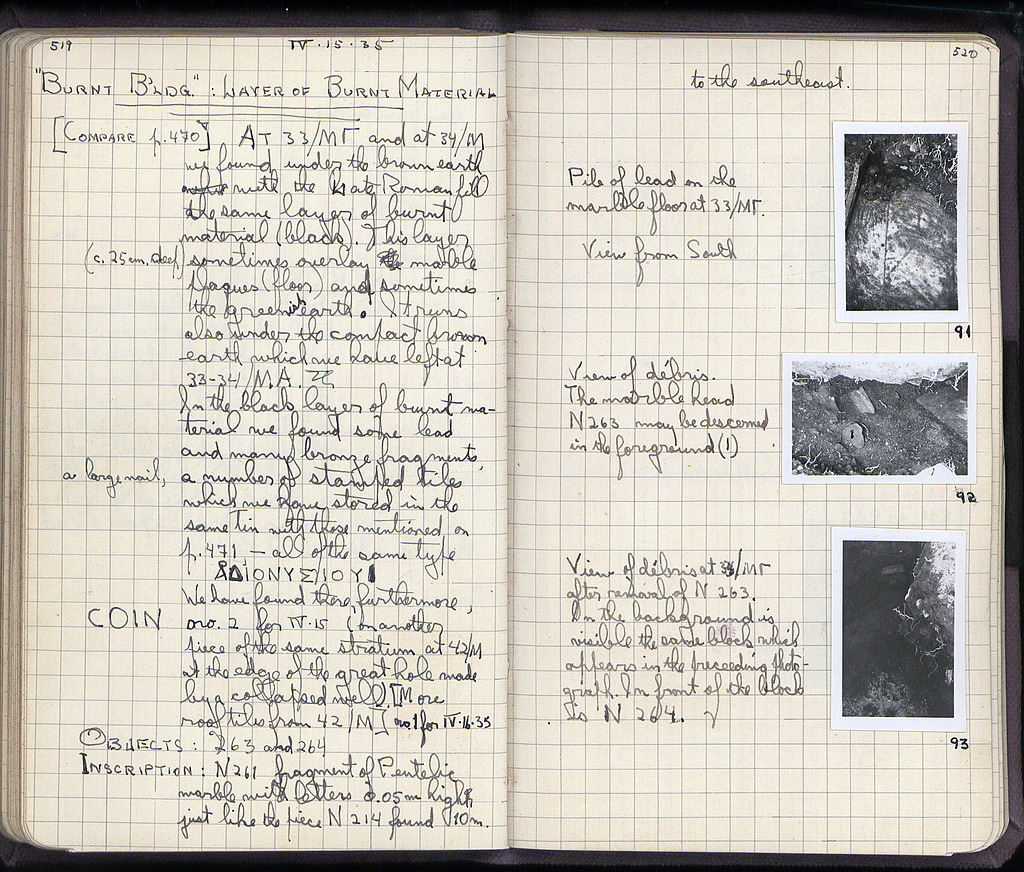 519
IV·15·35
"BURNT B'LDG.": LAYER OF BURNT MATERIAL
[COMPARE p.470] AT 33/MΓ and at 34/M
we found under the brown earth
with the Late Roman fill
the same layer of burnt
material (black). This layer
(c. 25 cm. deep) sometimes overlay marble
plaques (floor) and sometimes
the greenish earth. It runs
also under the compact brown
earth which we have left at
33-34/MA.
In the black layer of burnt ma-
terial we found some lead
and many bronze fragments,
a large nail, a number of stamped tiles
which we have stored in the
same tin with those mentioned on
p. 471 — all of the same type
ΔΙΟΝΥΣΙΟΥ
We have found there, furthermore,
COIN no. 2 for IV·15 (on another
piece of the same stratum at 42/M
at the edge of the great hole made
by a collapsed well). [More
roof tiles from 42/M] no. 1 for IV·16·35
OBJECTS: 263 and 264
INSCRIPTION: N 261 fragment of Pentelic
marble with letters 0.05 m high,
just like the piece N 214 found 10 m.
520
to the southeast.
Pile of lead on the
marble floor at 33/MΓ.
View from South
91
View of débris.
The marble head
N 263 may be descerned
in the foreground (1)
92
View of débris at /MΓ
after removal of N 263.
In the background is
visible the same block which
appears in the preceeding photo-
graph. In front of the block
is N 264.
93